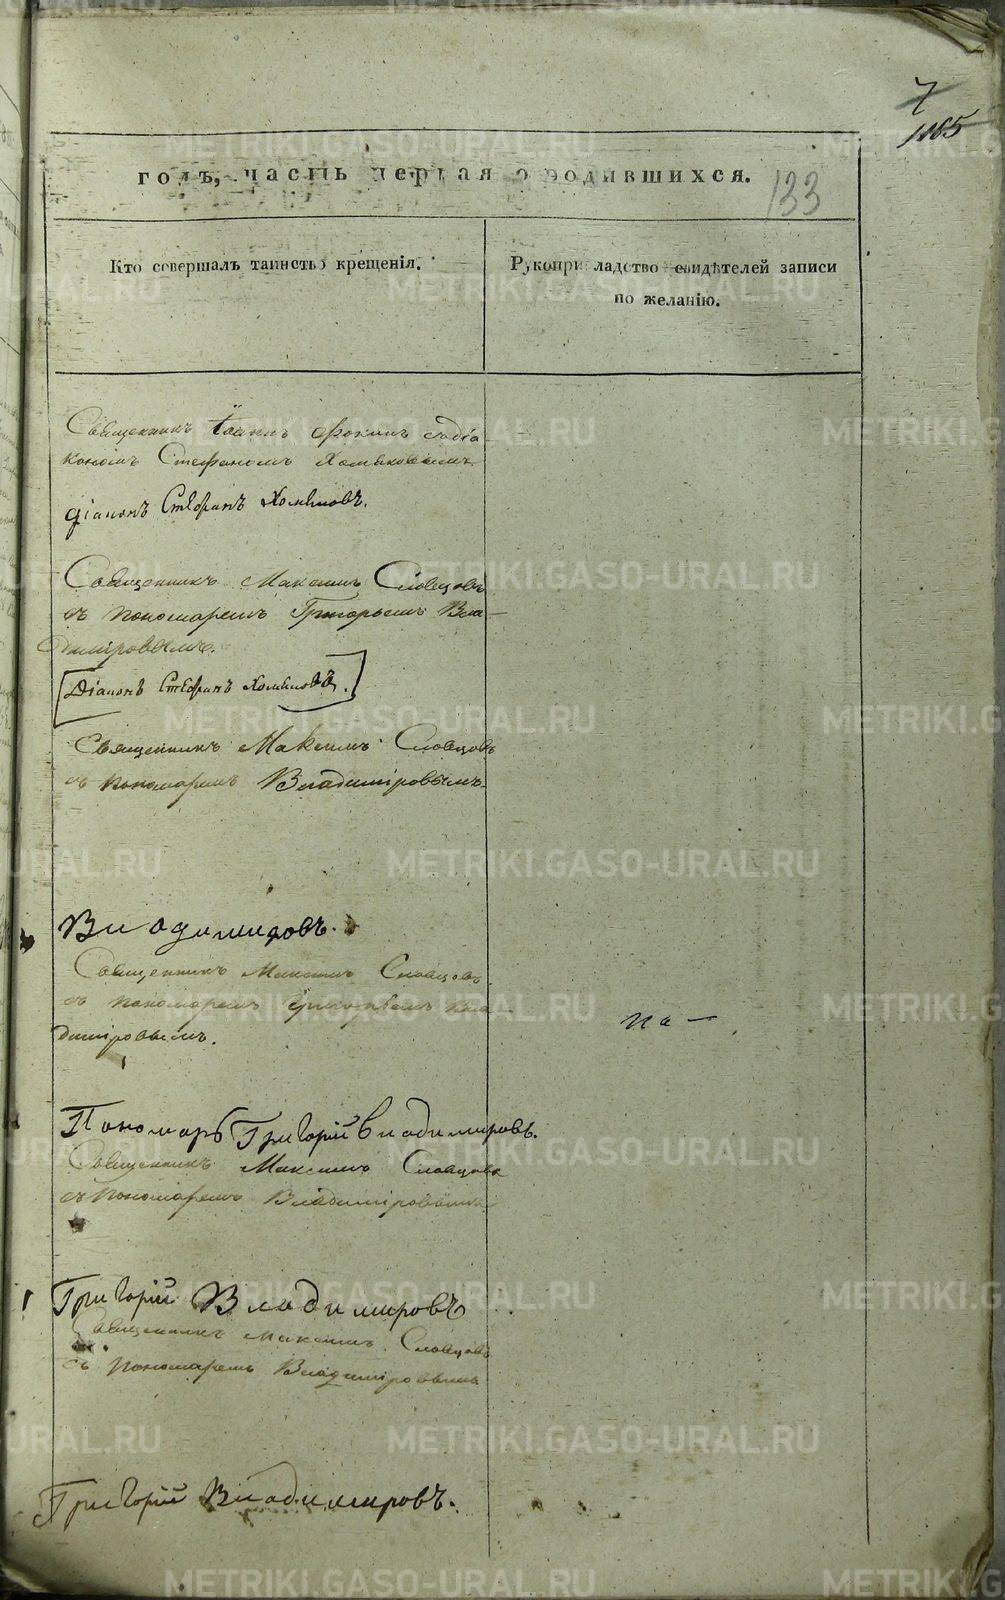 7
1185
годъ, часть первая о родившихся.
133
Кто совершалъ таинство крещенія.
Рукоприкладство свидѣтелей записи
по желанію.
Священникъ Іоаннъ Фокинъ с діа
кономъ Стефаномъ Хомяковымъ
Діаконъ Стефанъ Хомяковъ.
Священникъ Максимъ Словцовъ
съ пономаремъ Григорьемъ Вла-
диміровымъ.
Діаконъ Стефанъ Хомяковъ.
Священникъ Максимъ Словцовъ
съ пономаремъ Владиміровымъ.
Владимировъ.
Священникъ Максимъ Словцовъ
съ пономаремъ Григорьемъ Вла-
диміровымъ.
на-
Пономарь Григорій Владимировъ.
Священникъ Максимъ Словцовъ
съ пономаремъ Владиміровымъ
Григорій Владимировъ
Священникъ Максимъ Словцовъ
съ пономаремъ Владиміровымъ
Григорій Владимировъ.
METRIKI.GASO-URAL.RU